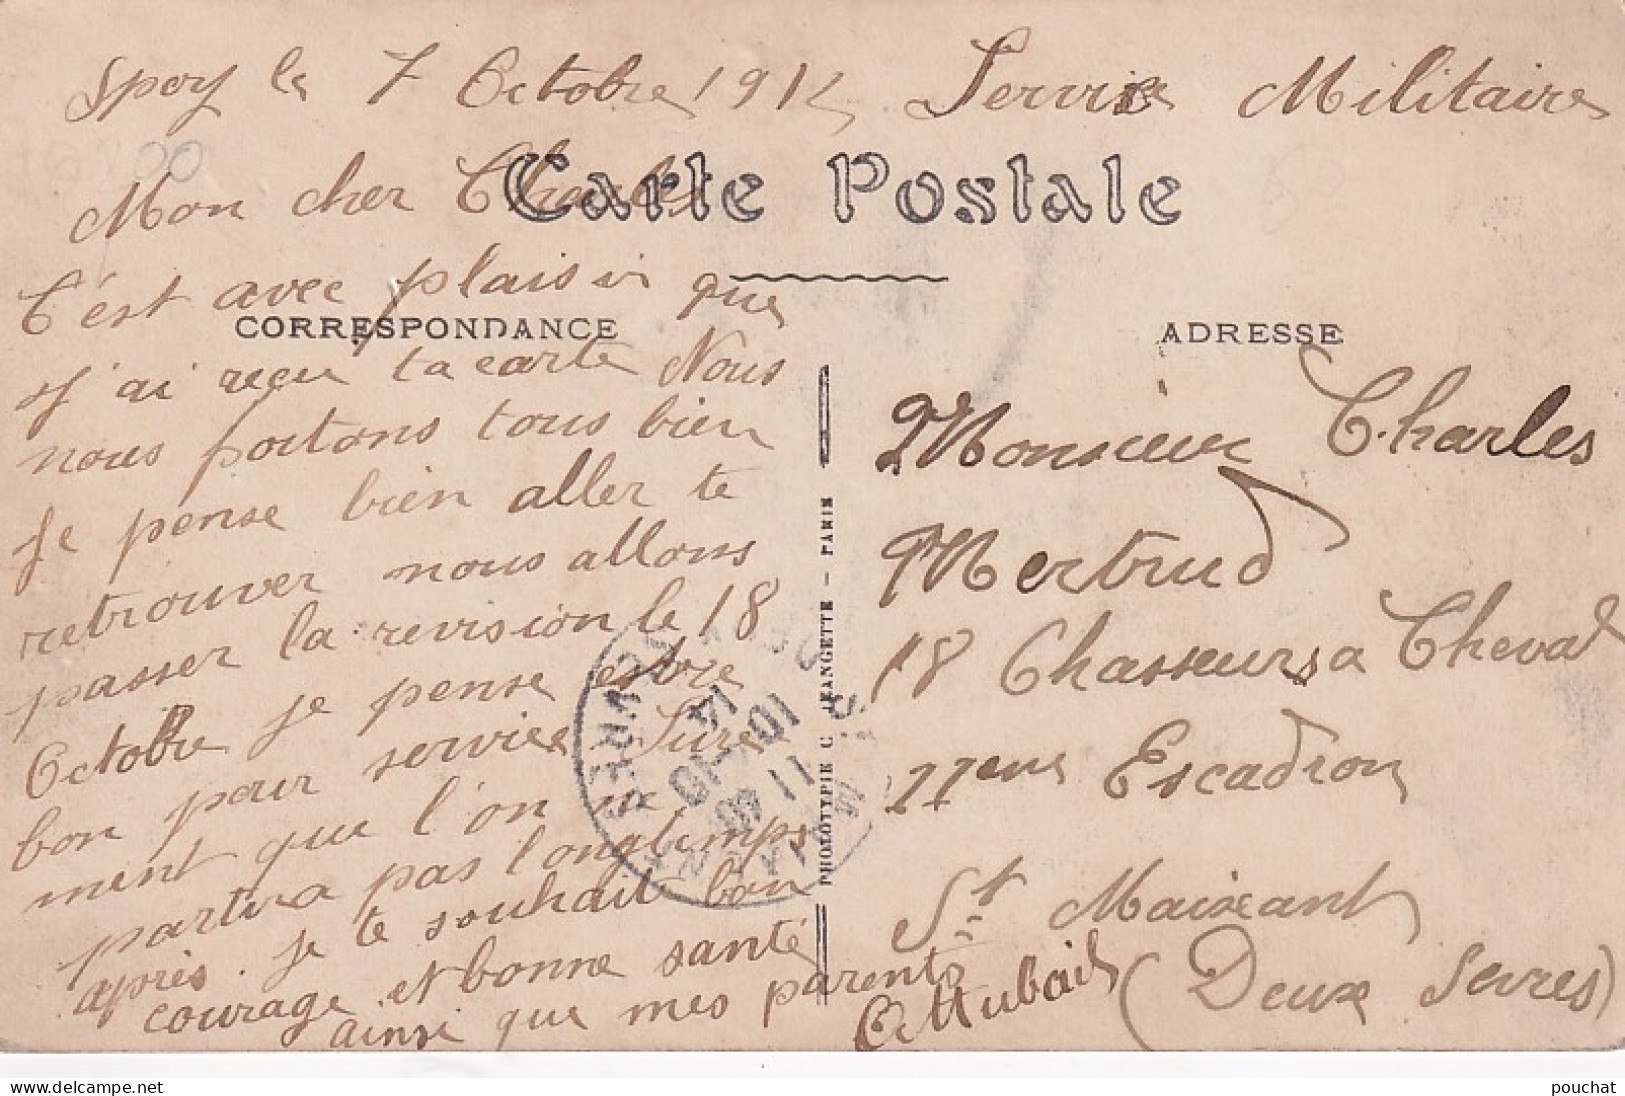 Spoy le 7 Octobre 1914
Service Militaire
Carte Postale
Mon cher Charles
C'est avec plaisir que
CORRESPONDANCE
j'ai reçu ta carte Nous
nous portons tous bien
Je pense bien aller te
retrouver nous allons
passer la revision le 18
Octobre je pense estre
bon pour service Sure
ment que l'on ne
partira pas longtemps
après. je te souhait bon
courage et bonne santé
ainsi que mes parents
ADRESSE
Monsieur Charles
Mertrud
18 Chasseurs a Cheval
11eme Escadron
St Maixant
(Deux Sevres)
PHOTOTYPIE - PARIS
11 40
10 - 10
14
pouchat